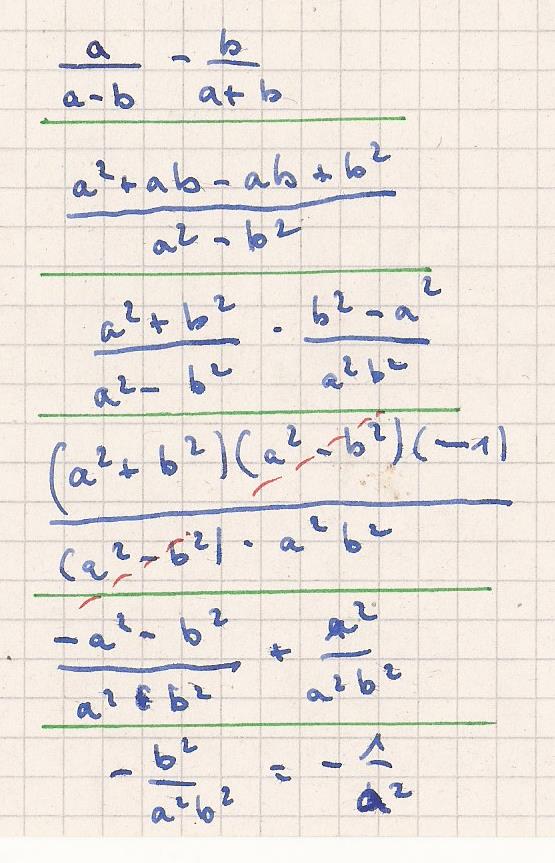 a/(a-b) - b/(a+b)
(a²+ab-ab+b²)/(a²-b²)
(a²+b²)/(a²-b²) · (b²-a²)/(a²b²)
((a²+b²)(a²-b²)(-1))/((a²-b²)·a²b²)
(-a²-b²)/(a²b²) + a²/(a²b²)
-b²/(a²b²) = -1/a²